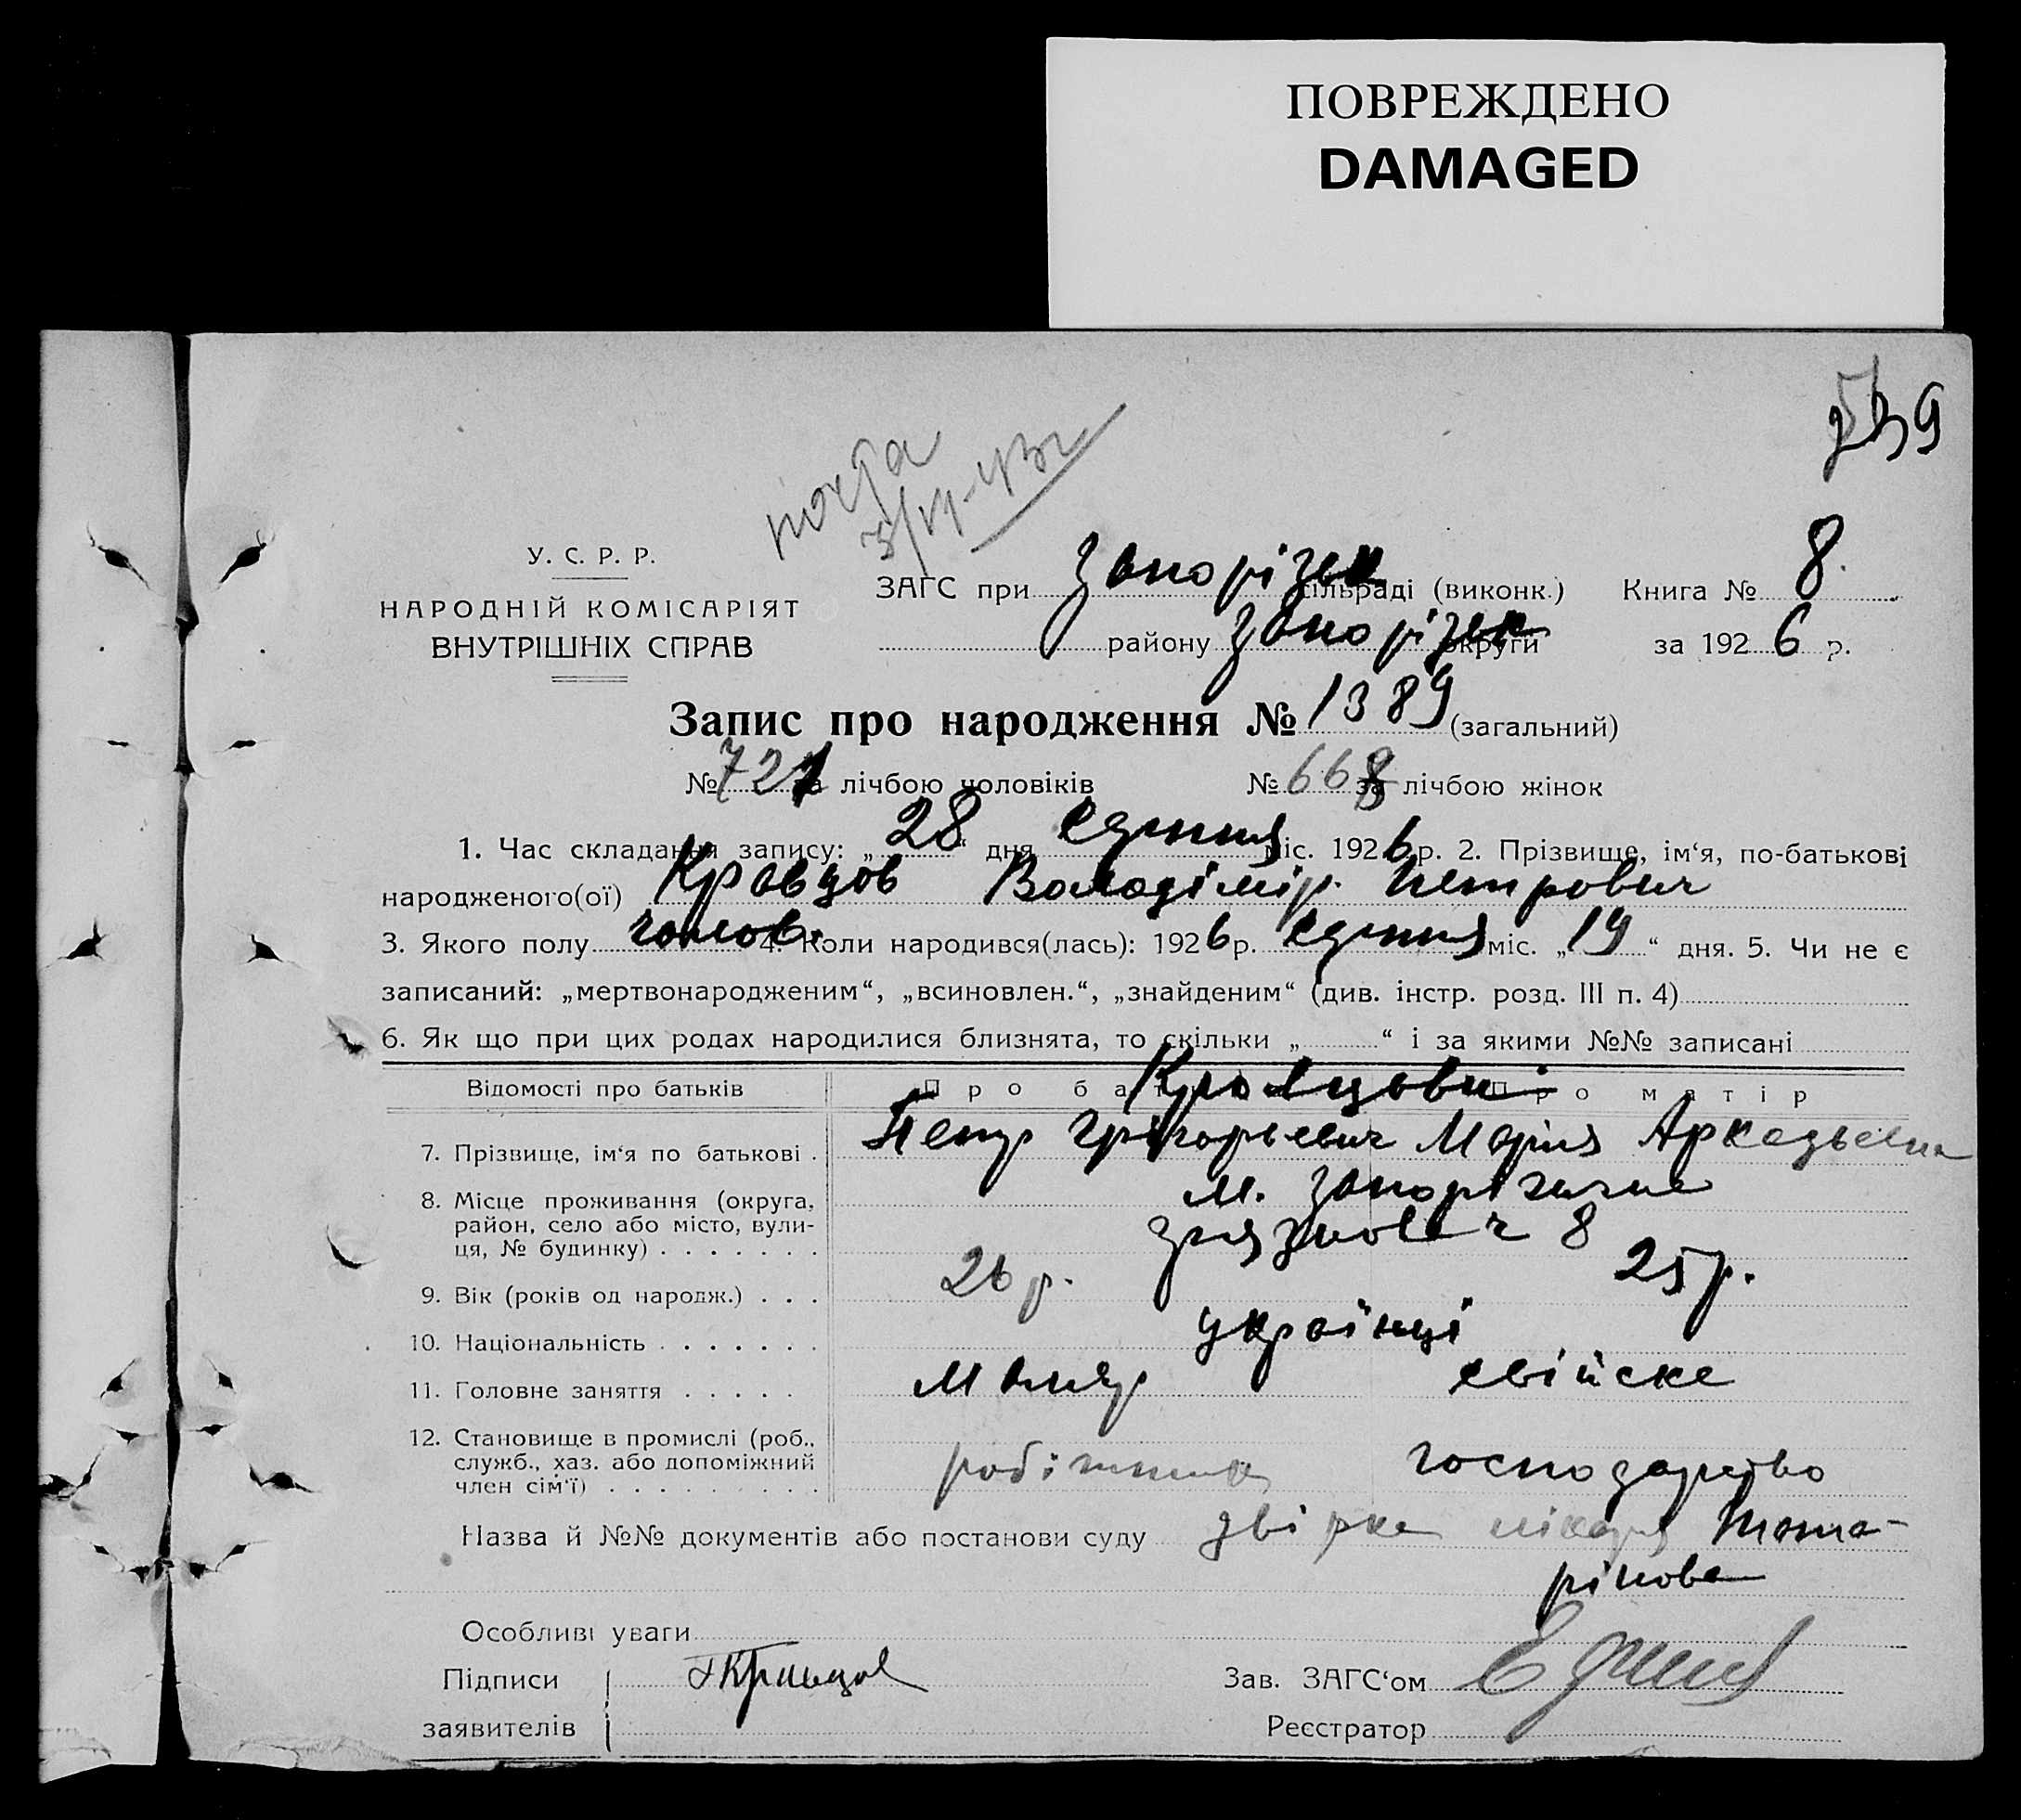 ПОВРЕЖДЕНО
DAMAGED
У. С. Р. Р.
НАРОДНІЙ КОМІСАРІЯТ
ВНУТРІШНІХ СПРАВ
ЗАГС при Запорізск сільраді (виконк.) Книга № 8.
району Запорізск округи за 1926 р.
Запис про народження № 1389 (загальний)
№ 721 за лічбою чоловіків № 668 за лічбою жінок
1. Час складання запису: „28“ дня серпня міс. 1926 р. 2. Прізвище, ім‘я, по-батькові
народженого(ої) Кравцов Володімір. Петрович
3. Якого полу чолов. 4. Коли народився(лась): 1926 р. серпня міс. „19“ дня. 5. Чи не є
записаний: „мертвонародженим“, „всиновлен.“, „знайденим“ (див. інстр. розд. III п. 4)
6. Як що при цих родах народилися близнята, то скільки „ “ і за якими №№ записані
Відомості про батьків Про батька Про матір
Кравцови
7. Прізвище, ім‘я по батькові . Петр Грігорьевич Марія Аркадьевна
8. Місце проживання (округа, район, село або місто, вули-ця, № будинку) . . . . . . . м. Запоріжжя
8
9. Вік (років од народж.) . . . 26 р. 25 р.
10. Національність . . . . . . . українці
11. Головне заняття . . . . . маляр свійске
12. Становище в промислі (роб., служб., хаз. або допоміжний член сім‘ї) . . . . . . . . . робітник господарство
Назва й №№ документів або постанови суду довірка лікаря Тота-
рінова
Особливі уваги
Підписи Кравцов Зав. ЗАГС‘ом
заявителів Реєстратор